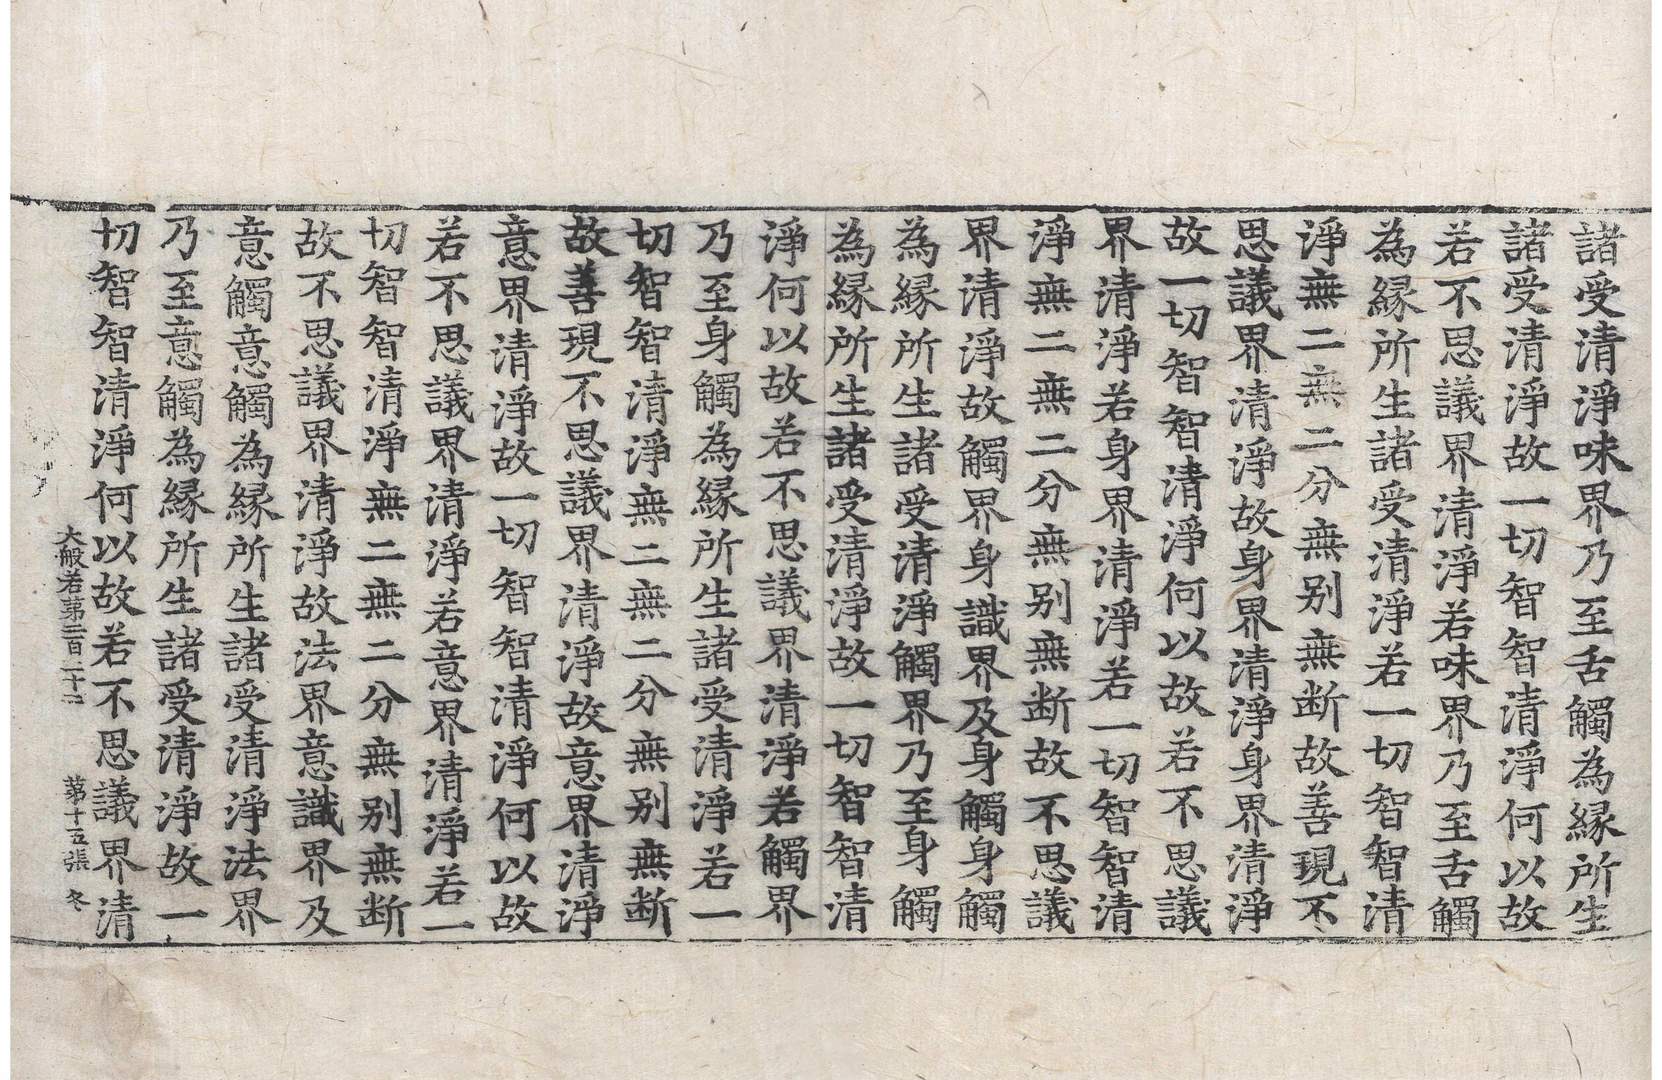 諸受清淨味界乃至舌觸為縁所生
諸受清淨故一切智智清淨何以故
若不思議界清淨若味界乃至舌觸
為縁所生諸受清淨若一切智智清
淨無二無二分無别無断故善現不
思議界清淨故身界清淨身界清淨
故一切智智清淨何以故若不思議
界清淨若身界清淨若一切智智清
淨無二無二分無别無断故不思議
界清淨故觸界身識界及身觸身觸
為縁所生諸受清淨觸界乃至身觸
為縁所生諸受清淨故一切智智清
淨何以故若不思議界清淨若觸界
乃至身觸為縁所生諸受清淨若一
切智智清淨無二無二分無别無断
故善現不思議界清淨故意界清淨
意界清淨故一切智智清淨何以故
若不思議界清淨若意界清淨若一
切智智清淨無二無二分無别無断
故不思議界清淨故法界意識界及
意觸意觸為縁所生諸受清淨法界
乃至意觸為縁所生諸受清淨故一
切智智清淨何以故若不思議界清
大般若第二百二十二 第十五張 冬